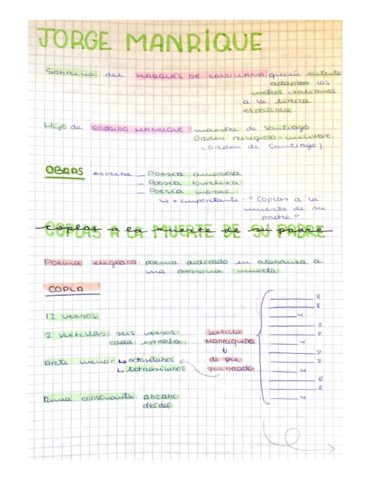 JORGE MANRIQUE
Sobrino del MARQUÉS DE SANTILLANA quién intentó
adaptar los
metros italianos
a la lírica
española
Hijo de RODRIGO MANRIQUE: maestre de Santiago
Orden religioso-militar
(Orden de Santiago)
OBRAS escribe — Poesía amorosa
— Poesía burlesca
— Poesía moral:
↳ + importante: "Coplas a la
muerte de su
padre"
COPLAS A LA MUERTE DE SU PADRE
Poema elegíaco poema dedicado en alabanza a
una persona muerta
COPLA
12 versos
2 sextillas: seis versos
cada estrofa
Sextilla
Manriqueña
ó
de pie
quebrado
Arte menor ↳ octosílabos
↳ tetrasílabos
Rima consonante: abcabc
defdef
8
8
4
8
8
4
8
8
4
8
8
4